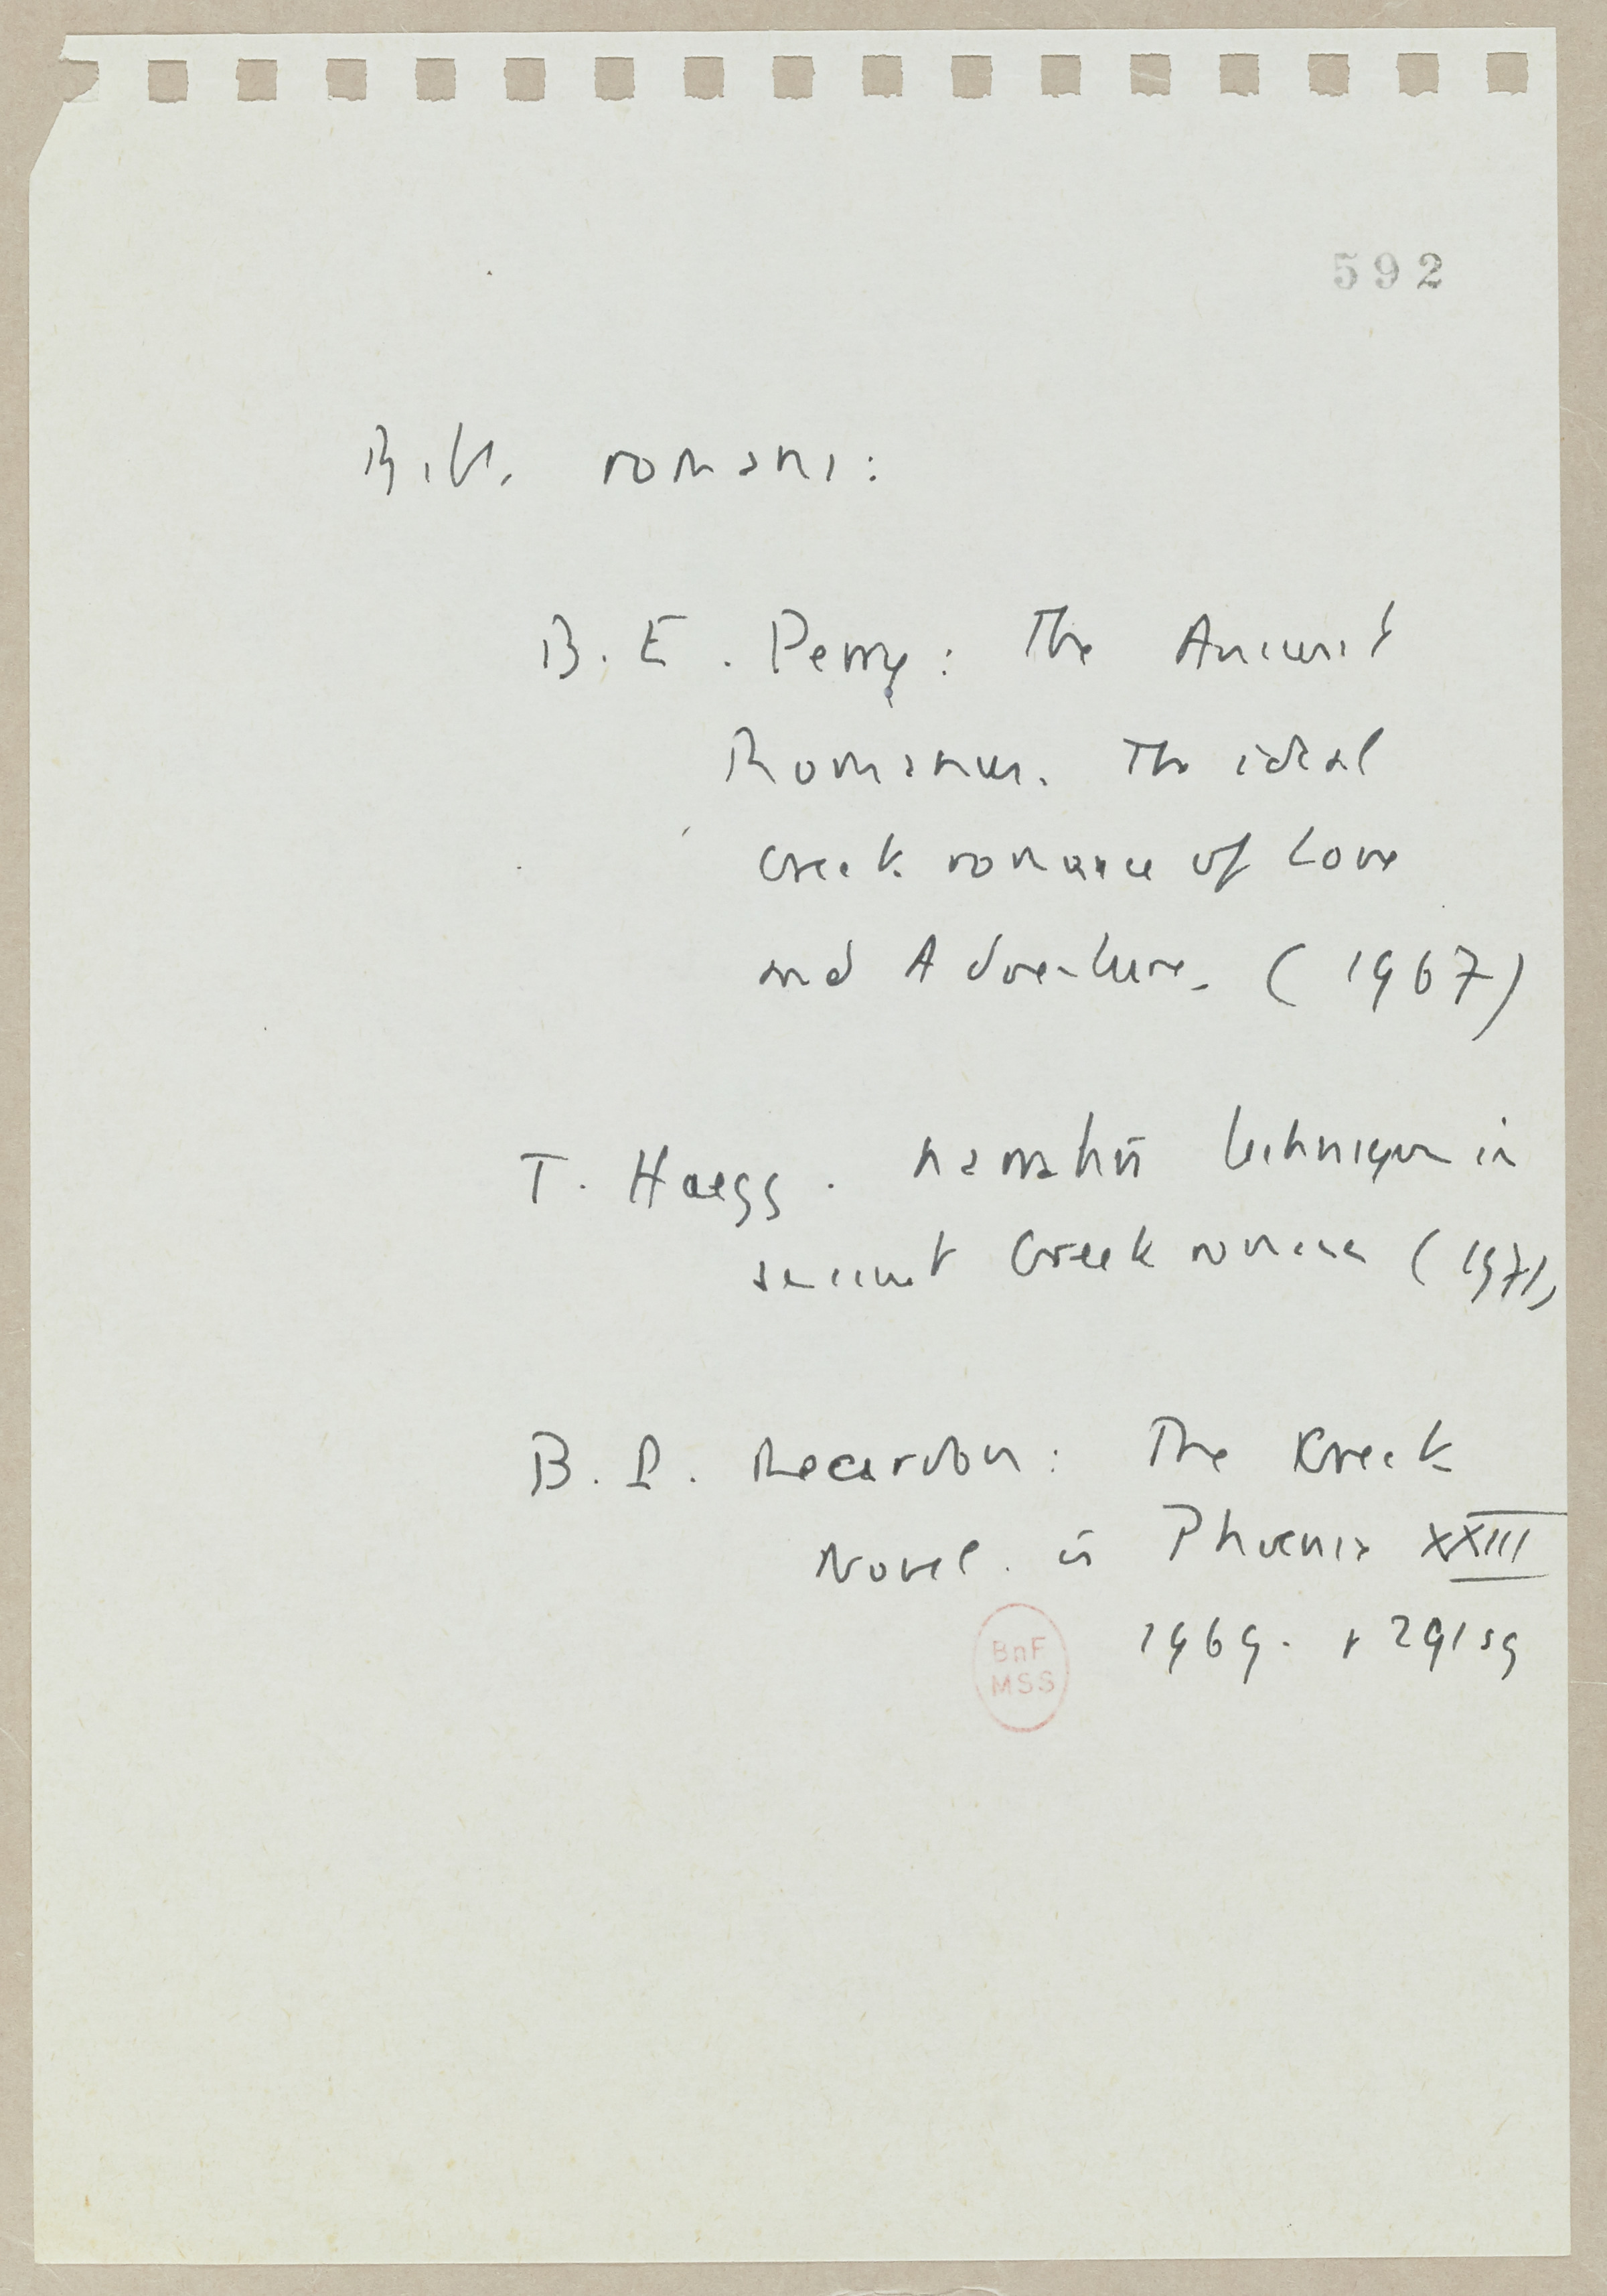 592
Bibl. romans :
B. E. Perry : The Ancient
Romances. The ideal
Greek romance of Love
and Adventure. (1967)
T. Haegg. Narrative technique in
ancient Greek romance (1971)
B. P. Reardon : The Greek
Novel. in Phoenix XXIII
1969. p 291 sq
BnF
MSS